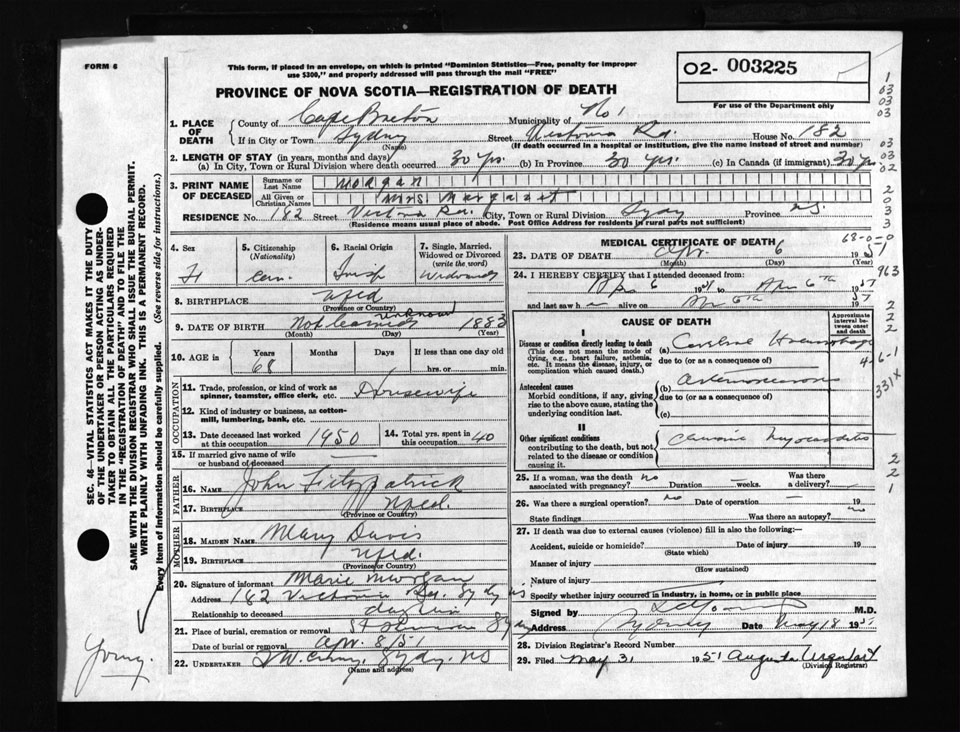 FORM 6
This form, if placed in an envelope, on which is printed "Dominion Statistics—Free, penalty for improper
use $300," and properly addressed will pass through the mail "FREE"
PROVINCE OF NOVA SCOTIA—REGISTRATION OF DEATH
02- 003225
For use of the Department only
1. PLACE OF DEATH
County of Cape Breton Municipality of No 1
If in City or Town Sydney (Name) Street Victoria Rd. House No. 182
(If death occurred in a hospital or institution, give the name instead of street and number)
2. LENGTH OF STAY (in years, months and days)
(a) In City, Town or Rural Division where death occurred 30 yrs. (b) In Province 30 yrs. (c) In Canada (if immigrant) 30 yrs
3. PRINT NAME OF DECEASED
Surname or Last Name Morgan
All Given or Christian Names Mrs. Margaret
RESIDENCE No. 182 Street Victoria Rd. City, Town or Rural Division Sydney Province NS.
(Residence means usual place of abode. Post Office Address for residents in rural parts not sufficient)
4. Sex
F
5. Citizenship (Nationality)
Can.
6. Racial Origin
Irish
7. Single, Married, Widowed or Divorced (write the word)
Widowed
8. BIRTHPLACE Nfld (Province or Country)
9. DATE OF BIRTH unknown 1883
(Month) (Day) (Year)
10. AGE in Years Months Days If less than one day old
68 hrs. or min.
OCCUPATION
11. Trade, profession, or kind of work as
spinner, teamster, office clerk, etc. Housewife
12. Kind of industry or business, as cotton-
mill, lumbering, bank, etc.
13. Date deceased last worked at this occupation 1950
14. Total yrs. spent in this occupation 40
15. If married give name of wife or husband of deceased —
FATHER
16. NAME John Fitzpatrick
17. BIRTHPLACE Nfld. (Province or Country)
MOTHER
18. MAIDEN NAME Mary Davis
19. BIRTHPLACE Nfld. (Province or Country)
20. Signature of informant Marie Morgan
Address 182 Victoria Rd. Sydney NS
Relationship to deceased
21. Place of burial, cremation or removal
Date of burial or removal Apr. 8/51
22. UNDERTAKER Sydney. NS
(Name and address)
MEDICAL CERTIFICATE OF DEATH
68-0-0
23. DATE OF DEATH Apr. 6 1951
(Month) (Day)
24. I HEREBY CERTIFY that I attended deceased from:
Apr 6 1951 to Apr 6th 1951
and last saw h alive on Apr 6th 1951
CAUSE OF DEATH
Approximate interval between onset and death
I
Disease or condition directly leading to death
(This does not mean the mode of dying, e.g., heart failure, asthenia, etc. It means the disease, injury, or complication which caused death.)
(a) Cerebral Haemorrhage
due to (or as a consequence of)
Antecedent causes
Morbid conditions, if any, giving rise to the above cause, stating the underlying condition last.
(b)
due to (or as a consequence of)
(c)
II
Other significant conditions
contributing to the death, but not related to the disease or condition causing it.
Chronic Myocarditis
25. If a woman, was the death associated with pregnancy? no Duration — weeks. Was there a delivery? —
26. Was there a surgical operation? no Date of operation — 19
State findings Was there an autopsy? no
27. If death was due to external causes (violence) fill in also the following:—
Accident, suicide or homicide? Date of injury 19
(State which)
Manner of injury
(How sustained)
Nature of injury
Specify whether injury occurred in industry, in home, or in public place
Signed by M.D.
Address Sydney Date May 18 1951
28. Division Registrar's Record Number
29. Filed May 31 1951 Augusta Urquhart
(Division Registrar)
SEC. 46—VITAL STATISTICS ACT MAKES IT THE DUTY
OF THE UNDERTAKER OR PERSON ACTING AS UNDER-
TAKER TO OBTAIN ALL THE PARTICULARS REQUIRED
IN THE "REGISTRATION OF DEATH" AND TO FILE THE
SAME WITH THE DIVISION REGISTRAR WHO SHALL ISSUE THE BURIAL PERMIT.
WRITE PLAINLY WITH UNFADING INK. THIS IS A PERMANENT RECORD.
Every item of Information should be carefully supplied. (See reverse side for instructions.)
Young.
1
03
03
03
03
02
2
0
3
3
963
2
2
2
6-1
331X
2
2
1